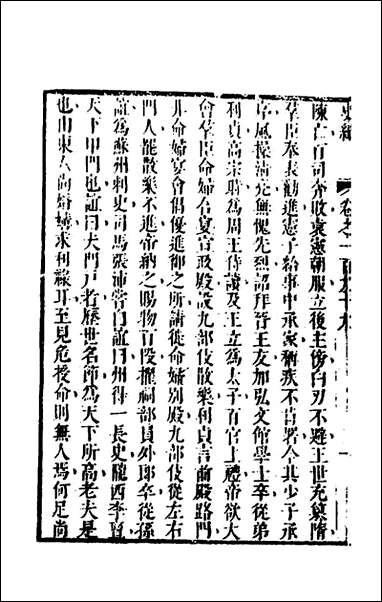 史緯 卷之一百九十九
陳亡百司奔散袁憲朝服立後主傍白刃不避王世充簒隋
羣臣奉表勸進憲子給事中承家稱疾不肯署今其少子承
序風操清亮無愧先烈詔拜晉王友加弘文館學士卒從弟
利貞高宗時爲周王侍讀及王立爲太子百官上禮帝欲大
會羣臣命婦合宴宣政殿設九部伎散樂利貞言前殿路門
非命婦宴會倡優進御之所請徙命婦別殿九部伎從左右
門入罷散樂不進帝納之賜物百段擢祠部員外郎卒從孫
誼爲蘇州刺史司馬張沛嘗門誼曰州得一長史隴西李亶
天下甲門也誼曰夫門戶者歷世名節爲天下所高老夫是
也山東人尚婚媾求利祿耳至見危授命則無人焉何足尚